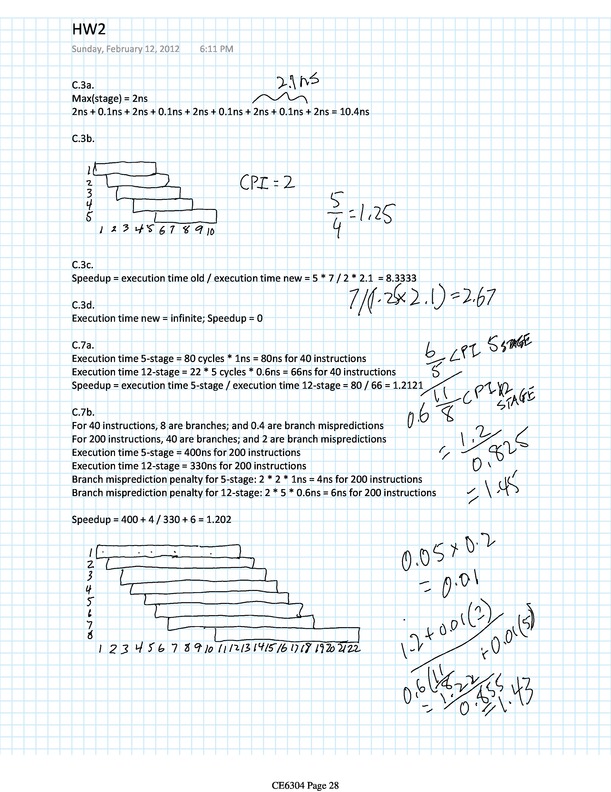 HW2
Sunday, February 12, 2012 6:11 PM
C.3a.
2.1ns
Max(stage) = 2ns
2ns + 0.1ns + 2ns + 0.1ns + 2ns + 0.1ns + 2ns + 0.1ns + 2ns = 10.4ns
C.3b.
1
2
3
4
5
1 2 3 4 5 6 7 8 9 10
CPI = 2
5/4 = 1.25
C.3c.
Speedup = execution time old / execution time new = 5 * 7 / 2 * 2.1 = 8.3333
7/(1.25 × 2.1) = 2.67
C.3d.
Execution time new = infinite; Speedup = 0
C.7a.
Execution time 5-stage = 80 cycles * 1ns = 80ns for 40 instructions
Execution time 12-stage = 22 * 5 cycles * 0.6ns = 66ns for 40 instructions
Speedup = execution time 5-stage / execution time 12-stage = 80 / 66 = 1.2121
6/5 CPI 5 STAGE
0.6 11/8 CPI 12 STAGE
= 1.2/0.825
= 1.45
C.7b.
For 40 instructions, 8 are branches; and 0.4 are branch mispredictions
For 200 instructions, 40 are branches; and 2 are branch mispredictions
Execution time 5-stage = 400ns for 200 instructions
Execution time 12-stage = 330ns for 200 instructions
Branch misprediction penalty for 5-stage: 2 * 2 * 1ns = 4ns for 200 instructions
Branch misprediction penalty for 12-stage: 2 * 5 * 0.6ns = 6ns for 200 instructions
Speedup = 400 + 4 / 330 + 6 = 1.202
1
2
3
4
5
6
7
8
1 2 3 4 5 6 7 8 9 10 11 12 13 14 15 16 17 18 19 20 21 22
0.05 × 0.2
= 0.01
1.2 + 0.01(2)
0.6(11/8 + 0.01(5)
= 1.22/0.855
= 1.43
CE6304 Page 28